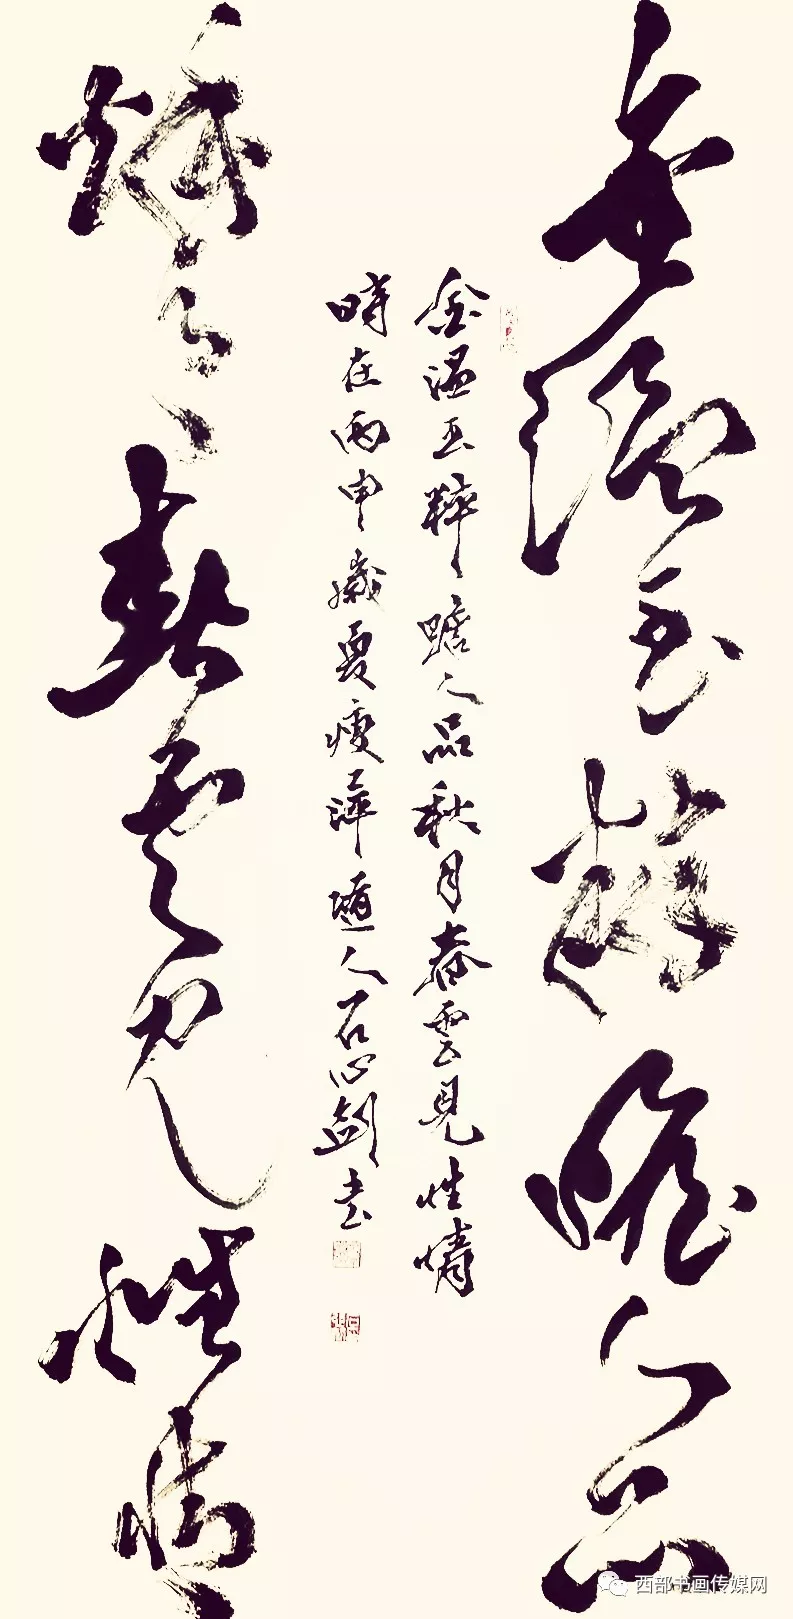 金溫玉粹瞻人品
金溫玉粹瞻人品秋月春雲見性情
時在丙申歲夏瘦萍隨人石心劍書
秋月春雲見性情
西部书画传媒网